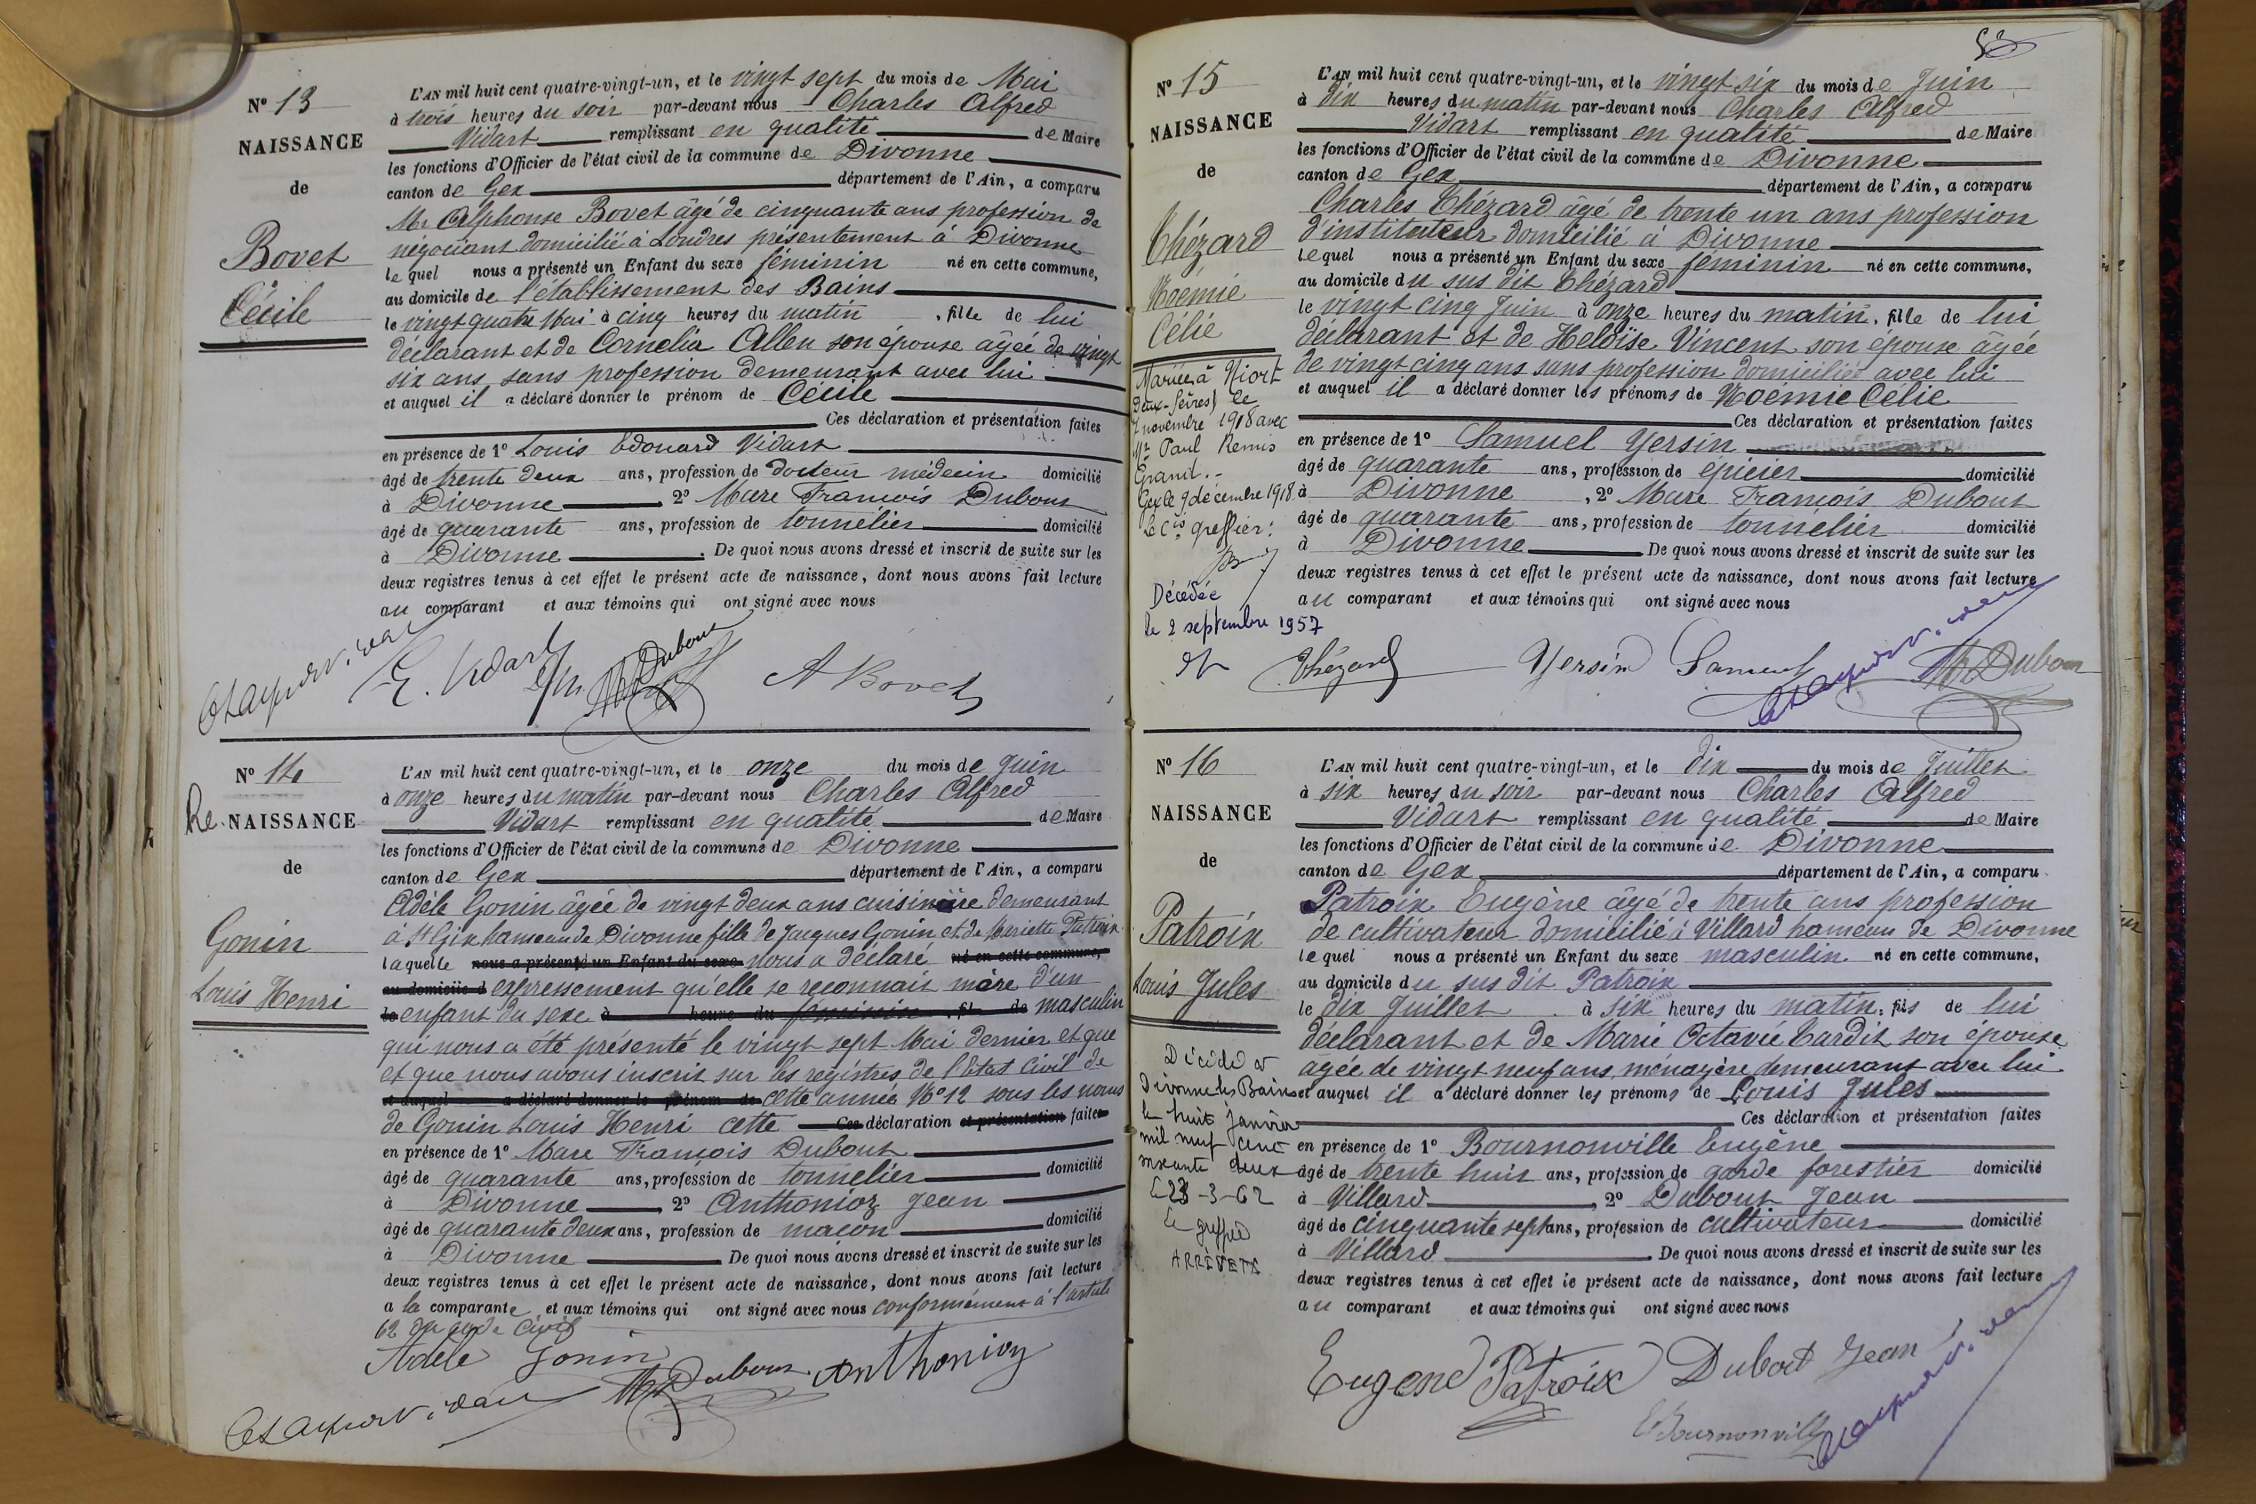 N° 13
NAISSANCE
de
Bovet
Cécile
L'AN mil huit cent quatre-vingt-un, et le vingt sept du mois de Mai
à trois heures du soir par-devant nous Charles Alfred
Vidart remplissant en qualité de Maire
les fonctions d'Officier de l'état civil de la commune de Divonne
canton de Gex département de l'Ain, a comparu
Mr Alphonse Bovet âgé de cinquante ans profession de
négociant domicilié à Londres présentement à Divonne
lequel nous a présenté un Enfant du sexe féminin né en cette commune,
au domicile de l'établissement des Bains
le vingt quatre Mai à cinq heures du matin, fille de lui
déclarant et de Cornelia Allen son épouse âgée de vingt
six ans, sans profession demeurant avec lui
et auquel il a déclaré donner le prénom de Cécile
Ces déclaration et présentation faites
en présence de 1° Louis Edouard Vidart
âgé de trente deux ans, profession de docteur médecin domicilié
à Divonne 2° Marc François Dubout
âgé de quarante ans, profession de tonnélier domicilié
à Divonne. De quoi nous avons dressé et inscrit de suite sur les
deux registres tenus à cet effet le présent acte de naissance, dont nous avons fait lecture
au comparant et aux témoins qui ont signé avec nous
E. Vidart
Dubout
A Bovet
N° 14
Re NAISSANCE
de
Gonin
Louis Henri
L'AN mil huit cent quatre-vingt-un, et le onze du mois de Juin
à onze heures du matin par-devant nous Charles Alfred
Vidart remplissant en qualité de Maire
les fonctions d'Officier de l'état civil de la commune de Divonne
canton de Gex département de l'Ain, a comparu
Adèle Gonin âgée de vingt deux ans cuisinière demeurant
à St Gix hameau de Divonne fille de Jacques Gonin et de Mariette Patroix
laquelle nous a présenté un Enfant du sexe nous a déclaré né en cette commune,
au domicile d expressement qu'elle se reconnait mère d'un
le enfant du sexe à heure du féminin, fil de masculin
qui nous a été présenté le vingt sept Mai dernier et que
et que nous avons inscrit sur les registres de l'Etat Civil de
et auquel a déclaré donner le prénom de cette année N° 12 sous les noms
de Gonin Louis Henri cette Ces déclaration et présentation faites
en présence de 1° Marc François Dubout
âgé de quarante ans, profession de tonnélier domicilié
à Divonne 2° Anthonioz Jean
âgé de quarante deux ans, profession de maçon domicilié
à Divonne De quoi nous avons dressé et inscrit de suite sur les
deux registres tenus à cet effet le présent acte de naissance, dont nous avons fait lecture
a la comparante et aux témoins qui ont signé avec nous conformément à l'article
62 du code Civil
Adèle Gonin
Dubout Anthonioz
N° 15
NAISSANCE
de
Thézard
Noémie
Célie
Mariée à Niort
Deux-Sèvres) le
novembre 1918 avec
Mr Paul Remis
Grand.-
Gex le 9 décembre 1918
Le Cis greffier:
Décédée
le 2 septembre 1957
L'AN mil huit cent quatre-vingt-un, et le vingt six du mois de Juin
à dix heures du matin par-devant nous Charles Alfred
Vidart remplissant en qualité de Maire
les fonctions d'Officier de l'état civil de la commune de Divonne
canton de Gex département de l'Ain, a comparu
Charles Thézard âgé de trente un ans profession
d'instituteur domicilié à Divonne
lequel nous a présenté un Enfant du sexe féminin né en cette commune,
au domicile du sus dit Thézard
le vingt cinq Juin à onze heures du matin, fille de lui
déclarant et de Heloïse Vincent son épouse âgée
de vingt cinq ans sans profession domiciliée avec lui
et auquel il a déclaré donner les prénoms de Noémie Célie
Ces déclaration et présentation faites
en présence de 1° Samuel Yersin
âgé de quarante ans, profession de épicier domicilié
à Divonne, 2° Marc François Dubout
âgé de quarante ans, profession de tonnélier domicilié
à Divonne De quoi nous avons dressé et inscrit de suite sur les
deux registres tenus à cet effet le présent acte de naissance, dont nous avons fait lecture
au comparant et aux témoins qui ont signé avec nous
Thézard Yersin Samuel Dubout
N° 16
NAISSANCE
de
Patroix
Louis Jules
Décédé à
Divonne les Bains
le huit Janvier
mil neuf cent
soixante deux
Le greffier
ARRIVETX
L'AN mil huit cent quatre-vingt-un, et le dix du mois de Juillet
à six heures du soir par-devant nous Charles Alfred
Vidart remplissant en qualité de Maire
les fonctions d'Officier de l'état civil de la commune de Divonne
canton de Gex département de l'Ain, a comparu
Patroix Eugène âgé de trente ans profession
de cultivateur domicilié à Villard hameau de Divonne
lequel nous a présenté un Enfant du sexe masculin né en cette commune,
au domicile du sus dit Patroix
le dix Juillet à six heures du matin, fils de lui
déclarant et de Marie Octavie Tardit son épouse
âgée de vingt neuf ans, ménagère demeurant avec lui
et auquel il a déclaré donner les prénoms de Louis Jules
Ces déclaration et présentation faites
en présence de 1° Bournonville Eugène
âgé de trente huit ans, profession de garde forestier domicilié
à Villard, 2° Dubout Jean
âgé de cinquante sept ans, profession de cultivateur domicilié
à Villard De quoi nous avons dressé et inscrit de suite sur les
deux registres tenus à cet effet le présent acte de naissance, dont nous avons fait lecture
au comparant et aux témoins qui ont signé avec nous
Eugene Patroix Dubout Jean
Bournonville